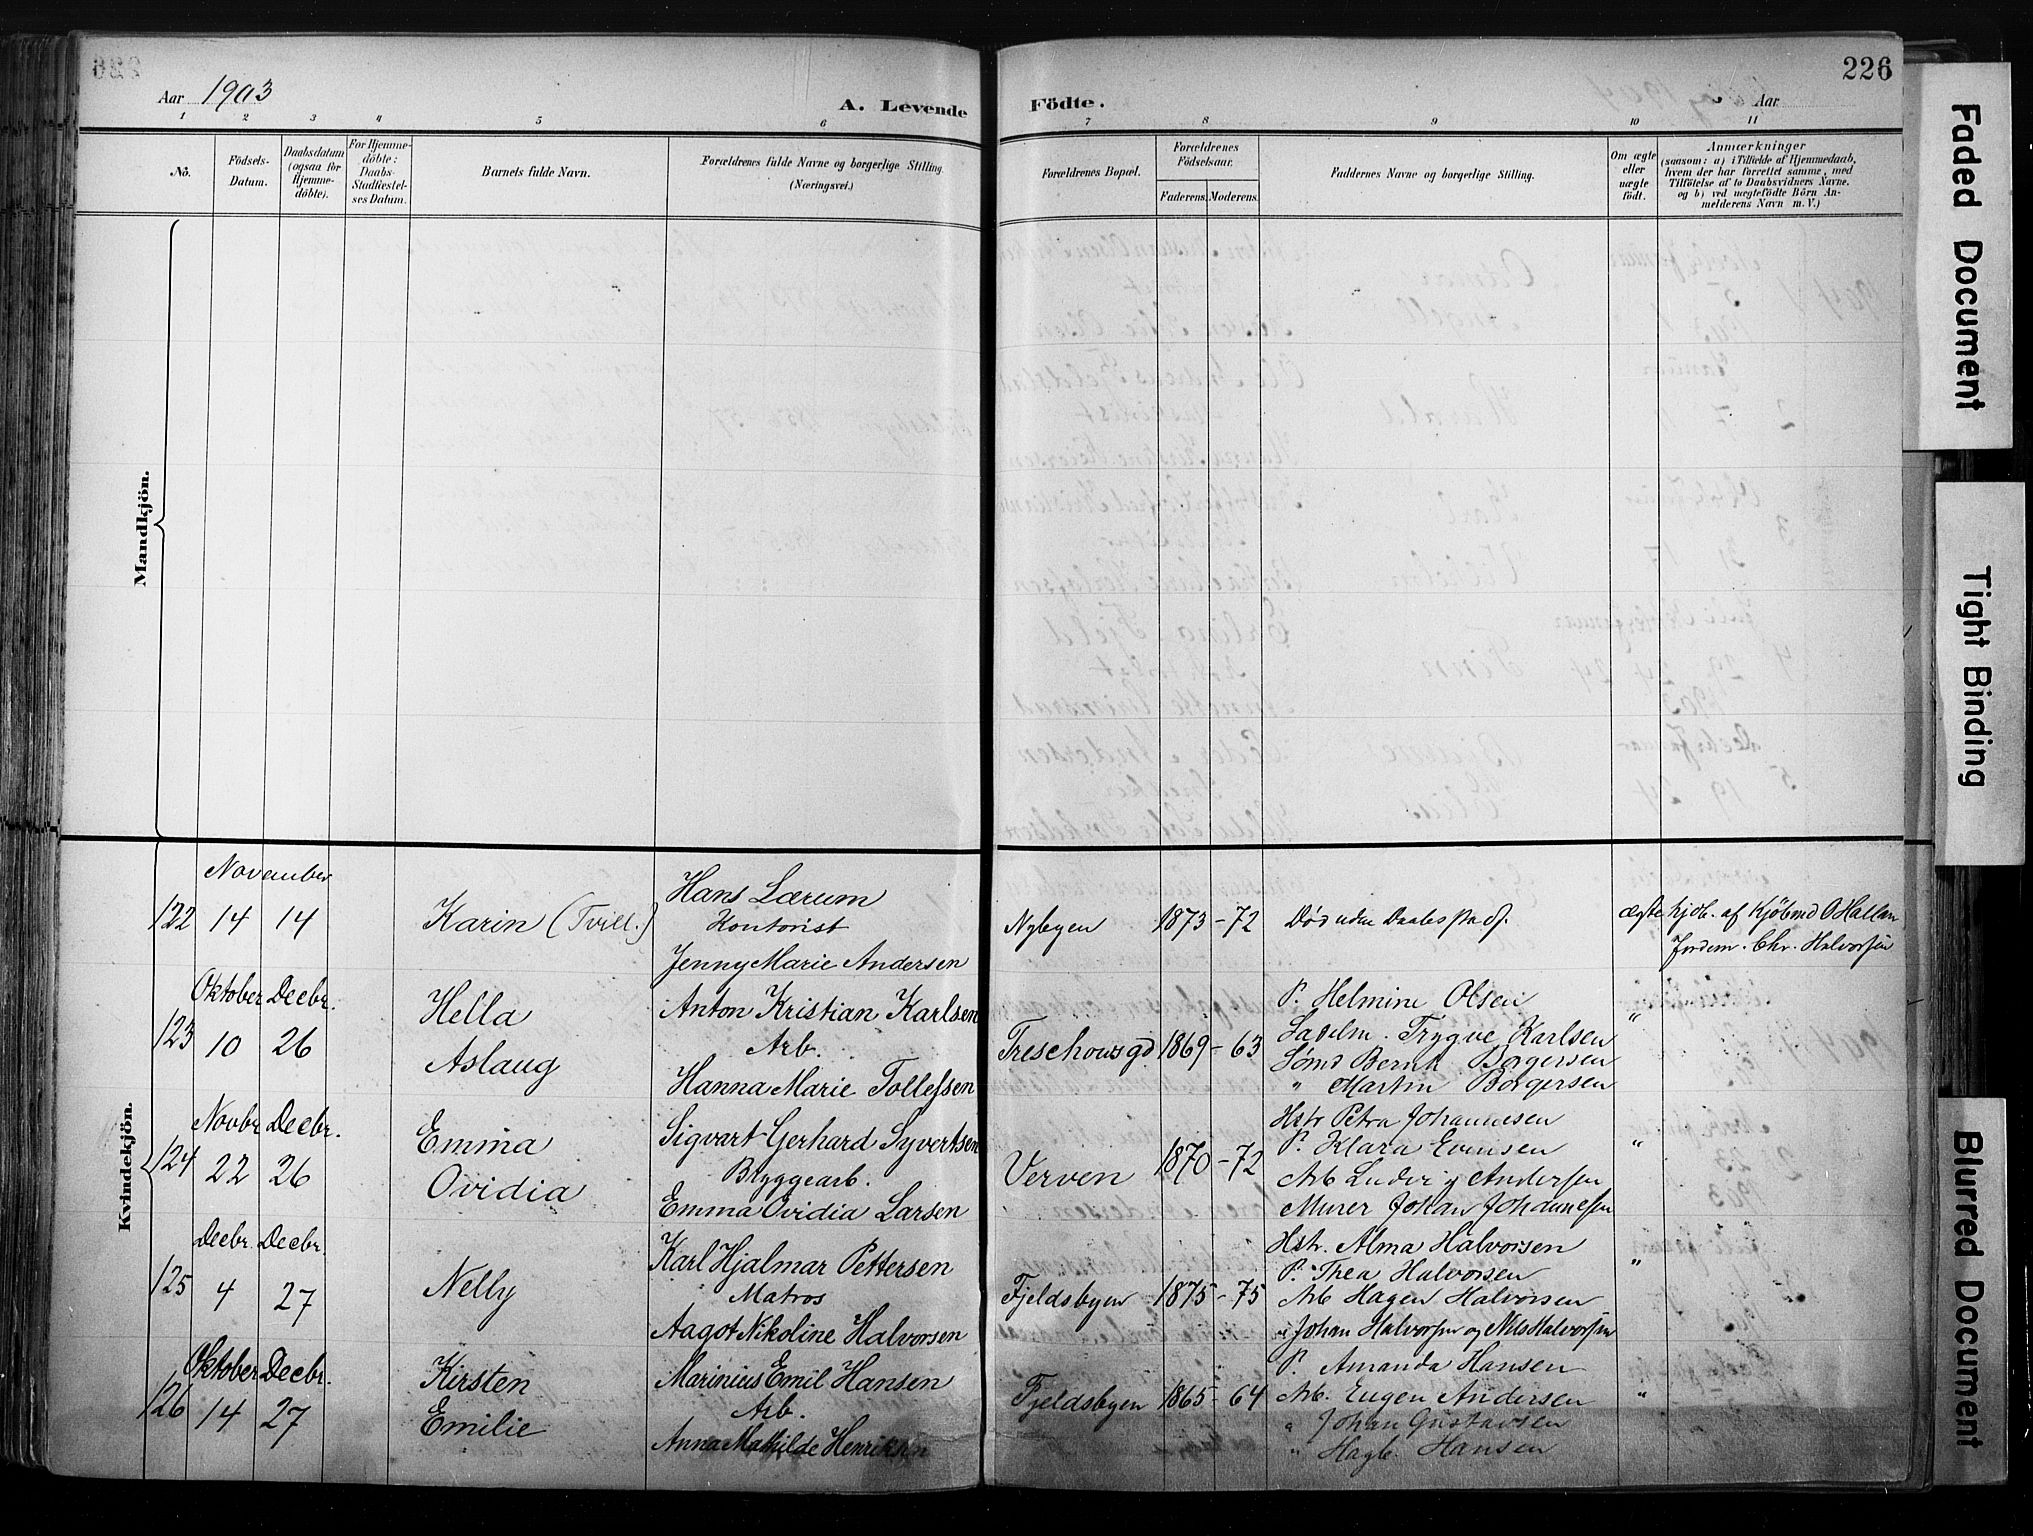 226
Aar 1903
A. Levende Födte.
Aar
1 2 3 4 5 6 7 8 9 10 11
No.
Födsels-Datum.
Daabsdatum (ogsaa for Hjemme-döbte).
For Hjemme-döbte: Daabs-Stadfæstel-ses Datum.
Barnets fulde Navn.
Forældrenes fulde Navne og borgerlige Stilling. (Næringsvei.)
Forældrenes Bopæl.
Forældrenes Födselsaar.
Faderens. Moderens.
Faddernes Navne og borgerlige Stilling.
Om ægte eller uægte födt.
Anmærkninger
(saasom: a) i Tilfælde af Hjemmedaab,
hvem der har forrettet samme, med
Tilföielse af to Daabsvidners Navne,
og b) ved uægtefödte Börn An-
melderens Navn m. V.)
Mandkjön.
Kvindekjön.
November
122 14 14
Karin (Tvill.)
Hans Lærum
Kontorist
Jenny Marie Andersen
Nybyen 1873-72
Død uden Daabspaaf.
ægte hjdb. af Kjøbmd O Hallan
Jordem. Chr. Halvorsen
Oktober Decbr.
123 10 26
Hella
Aslaug
Anton Kristian Karlsen
Arb.
Hanna Marie Tollefsen
Treschowsgd 1869-63
P. Helmine Olsen
Ladelm. Trygve Karlsen
Sømd Bernh Borgersen
" Martin Borgersen
"
Novbr Decbr.
124 22 26
Emma
Ovidia
Sigvart Gerhard Syvertsen
Bryggearb.
Emma Ovidia Larsen
Verven 1870-72
Hstr Petra Johannesen
P. Klara Evensen
Arb Ludvig Andersen
Murer Johan Johannessen
"
Decbr. Decbr.
125 4 27
Nelly
Karl Hjalmar Pettersen
Matros
Aagot Nikoline Halvorsen
Fjeldsbyen 1875-75
Hstr. Alma Halvorsen
P. Thea Halvorsen
Arb Hagen Halvorsen
" Johan Halvorsen og Nils Halvorsen
"
Oktober Decbr.
126 14 27
Kirsten
Emilie
Marinius Emil Hansen
Arb.
Anna Mathilde Henriksen
Fjeldsbyen 1865-64
P. Amanda Hansen
Arb. Eugen Andersen
" Johan Gustavsen
" Hagb. Hansen
"
Faded Document
Tight Binding
Blurred Document